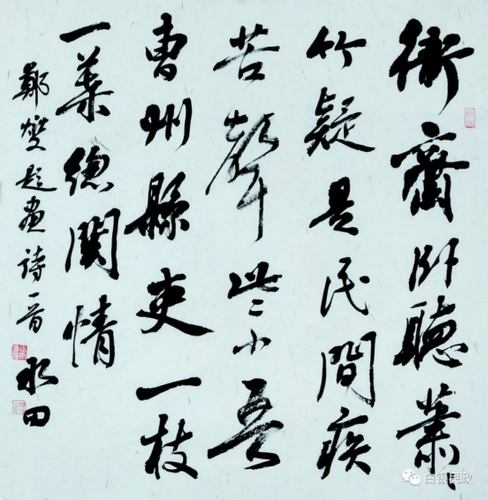 衙齋卧聽蕭〻
竹疑是民間疾
苦聲些小吾
曹州縣吏一枝
一葉總關情
鄭燮題畫詩一首
田
白银民政